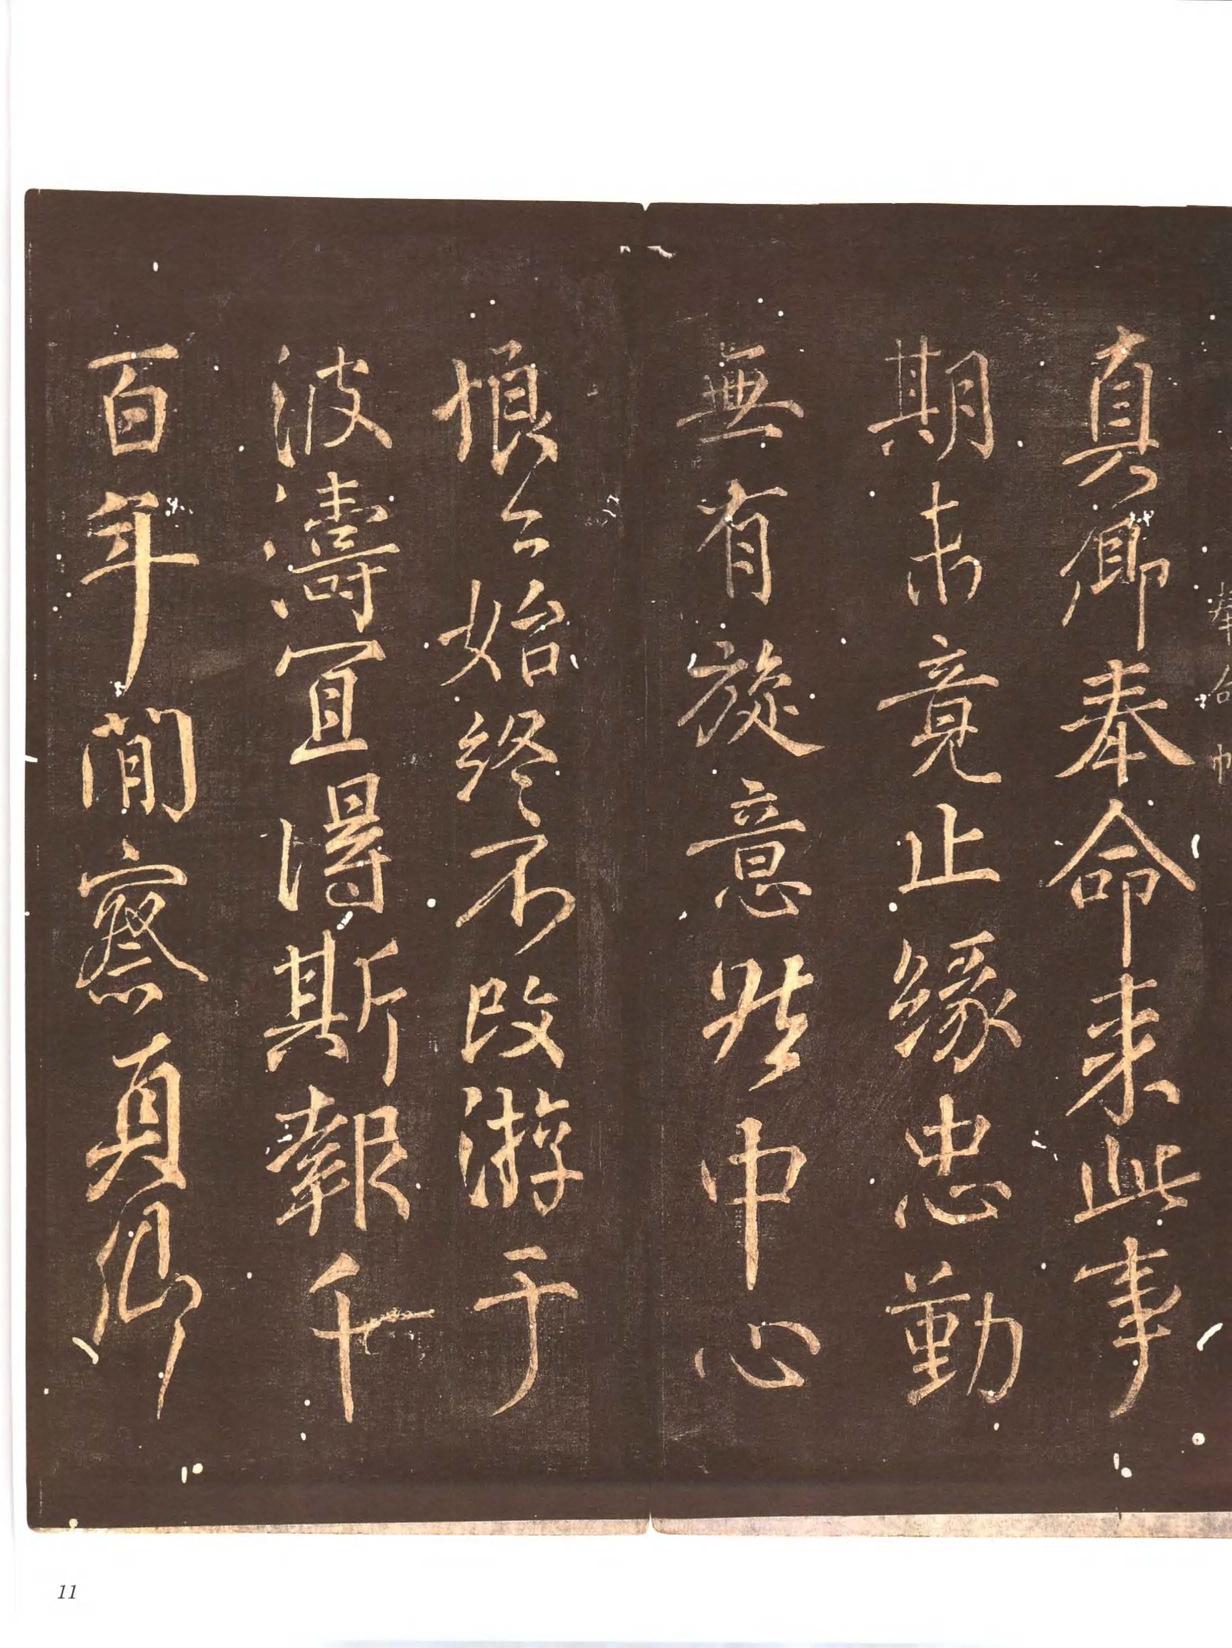 奉命帖
真卿奉命來此事
期未竟止緣忠勤
無有旋意然中心
悢々始終不改游于
波濤宜得斯報千
百年間察真卿
11